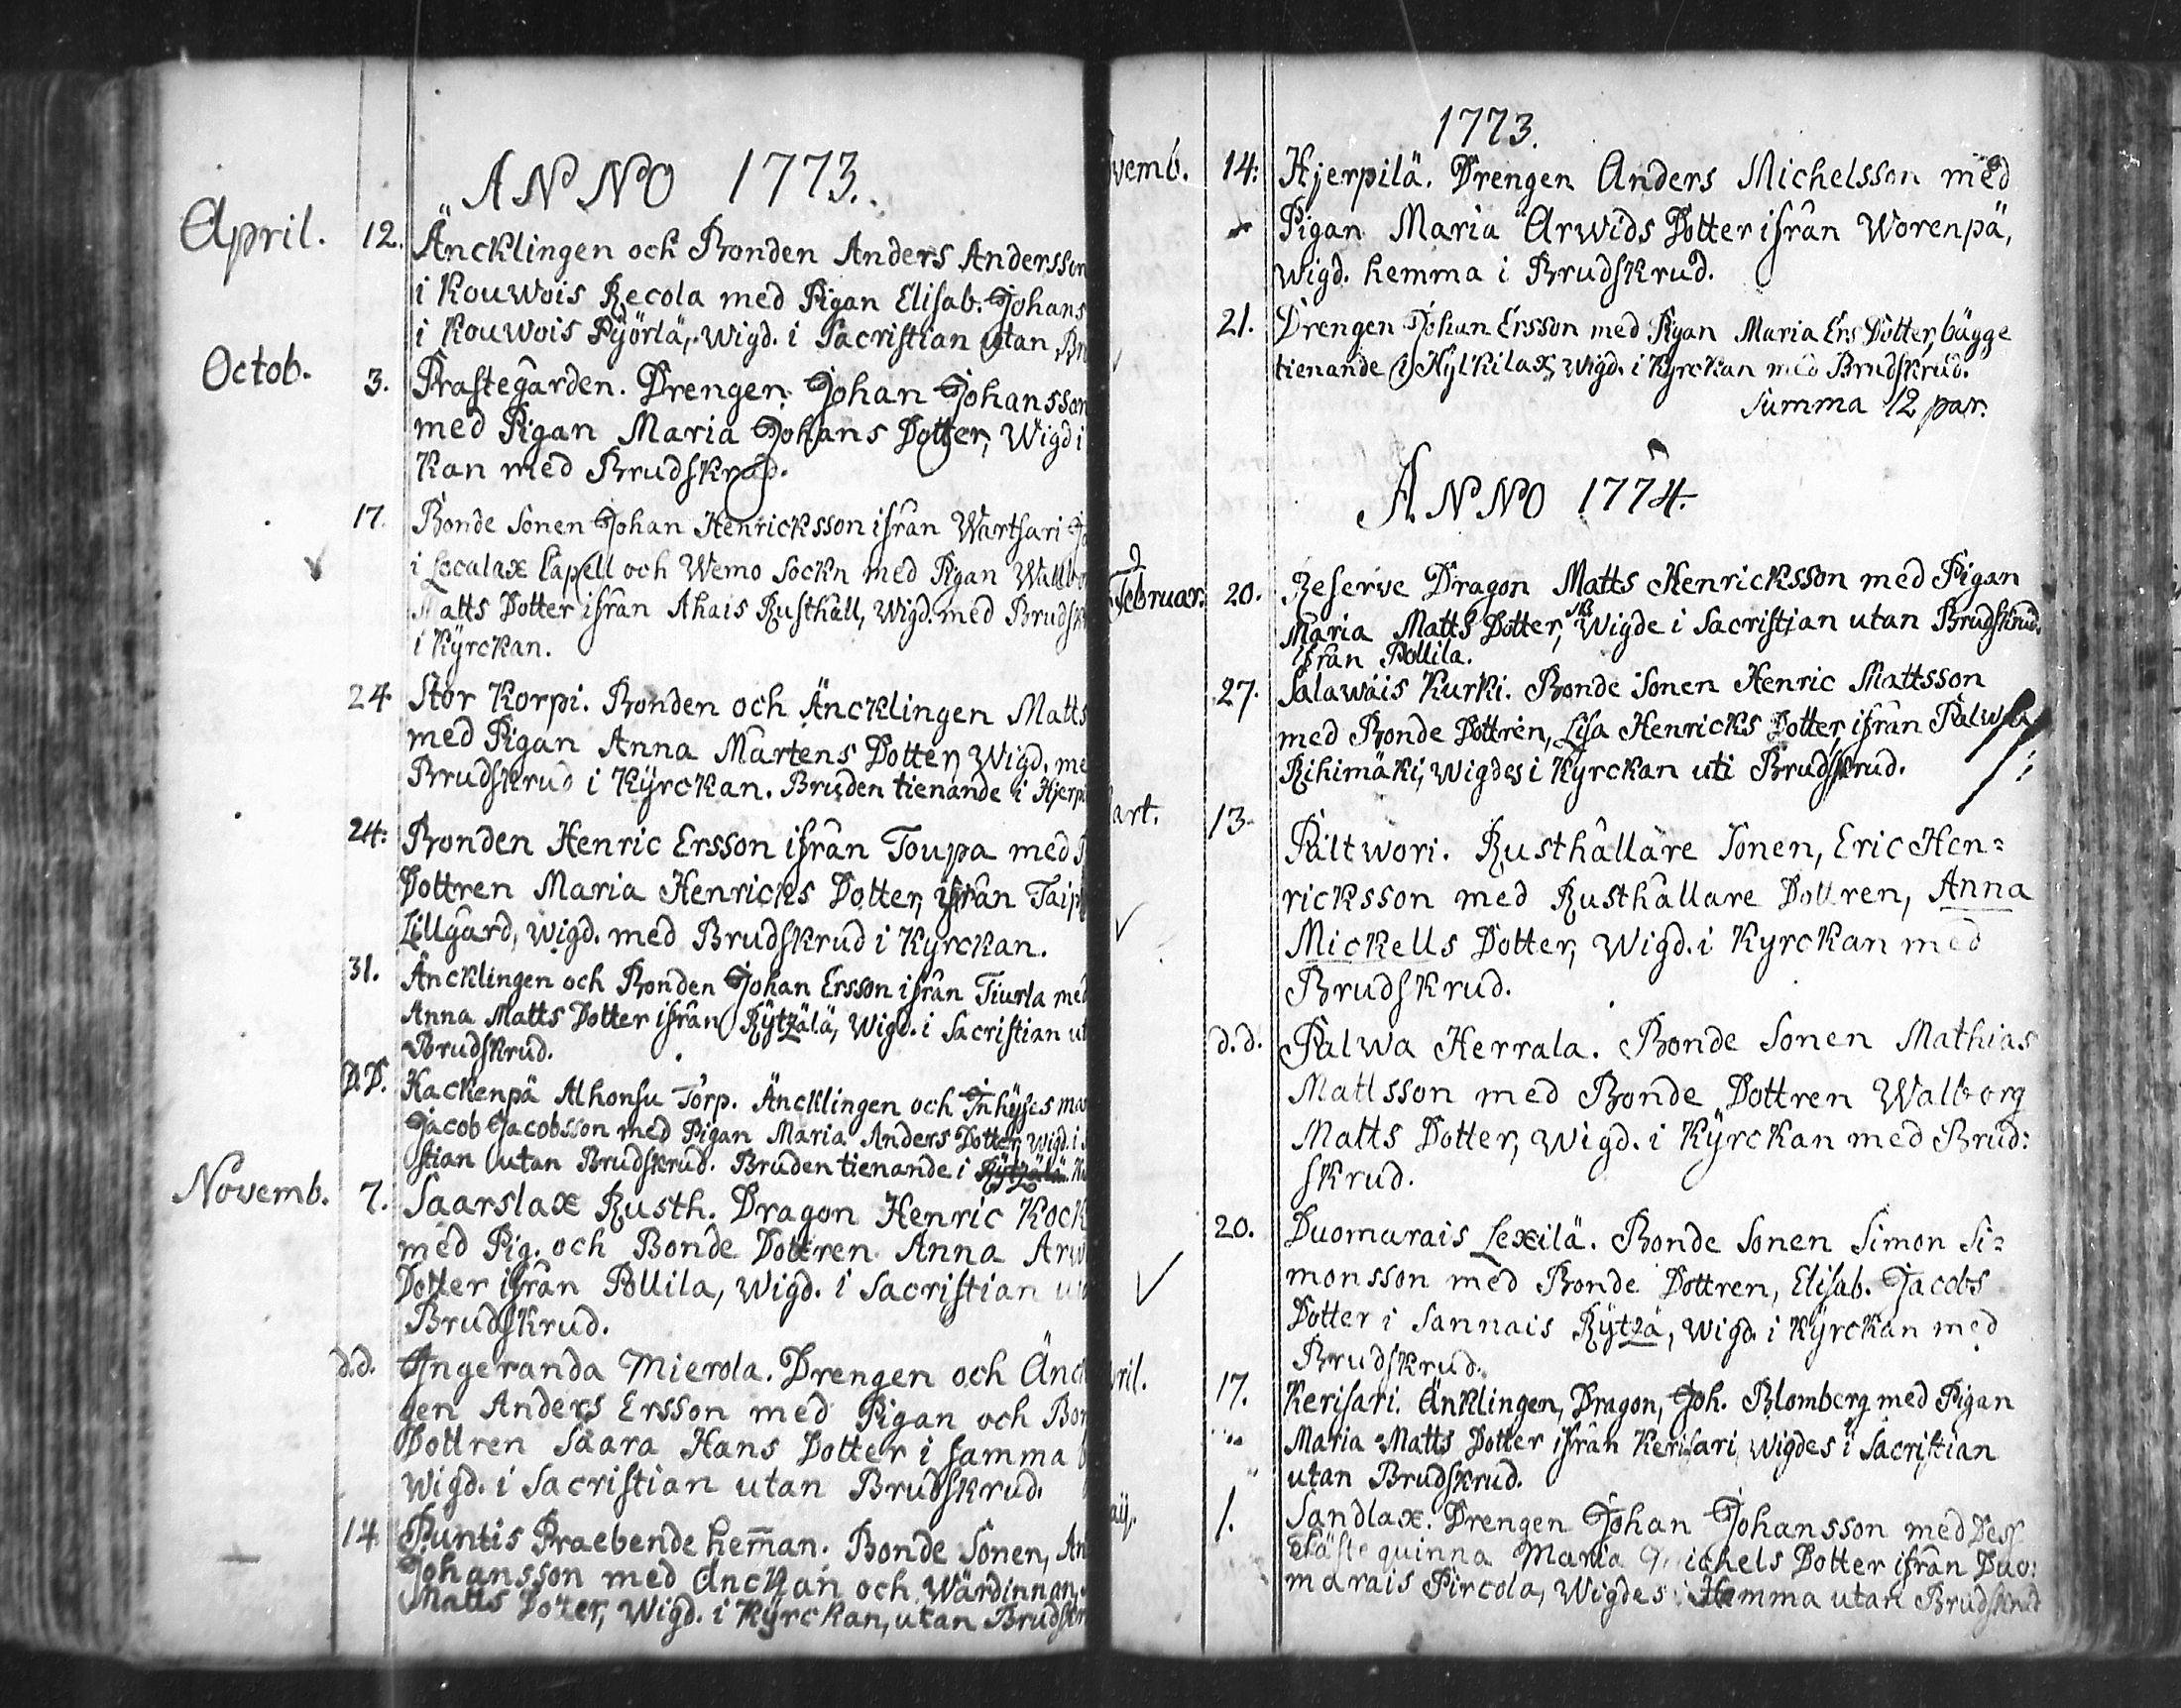 ANNO 1773.
April. 12. Äncklingen och Bonden Anders Andersson
i Kouwois Recola med Pigan Elisab. Johans
i Kouwois Pÿörlä, Wigd. i Sacristian utan Br
Octob. 3. Prastegården. Drengen Johan Johansson
med Pigan Maria Johans Dotter, Wigd i
kan med Brudskrud.
17. Bonde Sonen Johan Henricksson ifrån Wartsari
i Localax Capell och Wemo Sockn med Pigan Wallbo
Matts Dotter ifrån Ahais Rusthåll, Wigd. med Brudsk
i Kÿrckan.
24 Stor Korpi. Bonden och Äncklingen Matts
med Pigan Anna Mårtens Dotter, Wigd. me
Brudskrud i Kÿrckan. Bruden tienande i Hjerpi
24: Bonden Henric Ersson ifrån Toupa med
Dottren Maria Henricks Dotter, ifrån Taip
Lillgård, wigd. med Brudskrud i Kyrckan.
31. Äncklingen och Bonden Johan Ersson ifrån Tiurla med
Anna Matts Dotter ifrån Rÿtzälä, Wigd. i Sacristian ut
Brudskrud.
D.D. Hackenpä Alhonsu Torp. Äncklingen och Inhÿses man
Jacob Jacobsson med Pigan Maria Anders Dotter, wigd. i
stian utan Brudskrud. Bruden tienande i Rÿtzälä.
Novemb. 7. Saarslax Rusth. Dragon Henric Kock
med Pig. och Bonde Dottren Anna Arw
Dotter ifrån Pollila, Wigd. i Sacristian ut
Brudskrud.
d.d. Ingeranda Mierola. Drengen och Änck
gen Anders Ersson med Pigan och Bon
Dottren Saara Hans Dotter i samma b
wigd. i Sacristian utan Brudskrud.
14 Puntis Praebende hem̄an. Bonde Sonen, An
Johansson med Änckan och Wärdinnan,
Matts Dotter, Wigd. i Kÿrckan, utan Brudskr
1773.
vemb. 14: Hjerpilä. Drengen Anders Michelsson med
Pigan Maria Arwids Dotter ifrån Worenpä,
wigd. hemma i Brudskrud.
21. Drengen Johan Ersson med Pigan Maria Ers Dotter, bägge
tienande i Hylkilax, wigd. i Kyrckan med Brudskrud.
Summa 12 par.
ANNO 1774.
Februar. 20. Reserve Dragon Matts Henricksson med Pigan
Maria Matts Dotter, Wigde i Sacristian utan Brudskrud.
ifrån Pollila.
27. Salawais Kurki. Bonde Sonen Henric Mattsson
med Bonde Dottren, Lisa Henricks Dotter, ifrån Palwa
Rihimäki, Wigdes i Kyrckan uti Brudskrud.
art. 13. Paltwori. Rusthållare Sonen, Eric Hen=
ricksson med Rusthållare Dottren, Anna
Mickells Dotter, Wigd. i Kyrckan med
Brudskrud.
d.d. Palwa Herrala. Bonde Sonen Mathias
Mattsson med Bonde Dottren Walborg
Matts Dotter, Wigd. i Kÿrckan med Brud:
skrud.
20. Duomarais Lexilä. Bonde Sonen Simon Si=
monsson med Bonde Dottren, Elisab. Jacobs
Dotter i Sannais Rÿtzä, wigd. i Kÿrckan med
Brudskrud.
ril. 17. Kerisari. Änklingen, Dragon, Joh. Blomberg med Pigan
Maria Matts Dotter ifrån Kerisari, wigdes i Sacristian
utan Brudskrud.
aij. 1. Sandlax. Drengen Johan Johansson med Dess
fäste quinna Maria Michels Dotter ifrån Duo:
marais Pircola, Wigdes Hemma utan Brudskrud